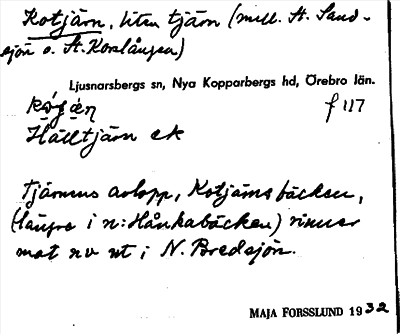 Kotjärn, liten tjärn (mell. St. Sand-
sjön o. St. Korslången)
Ljusnarsbergs sn, Nya Kopparbergs hd, Örebro län.
f 117
Hälltjärn ek
Tjärnens avlopp, Kotjärnsbäcken,
(längre i n: Hånkabäcken) rinner
mot nv ut i N. Bredsjön.
MAJA FORSSLUND 1932